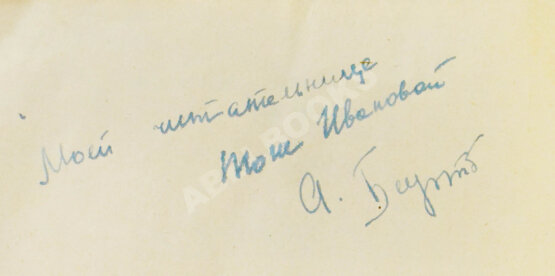 Моей читательнице
Тане Ивановой
А. Барто
ABV BOOKS